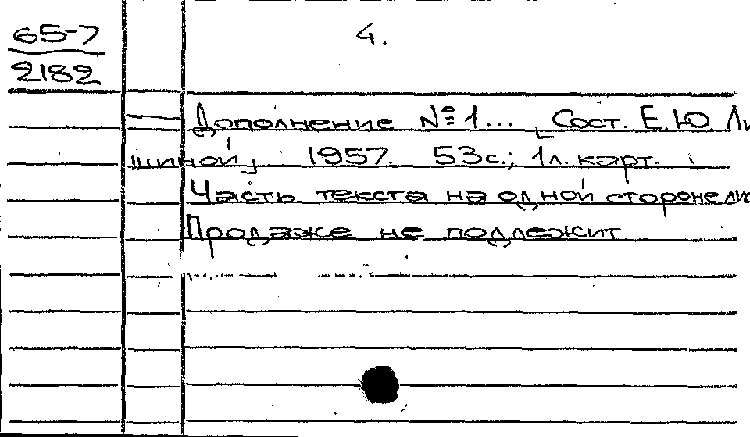 65-7
4.
2182
Дополнение №1... [Сост. Е.Ю. Ли
шиной], 1957. 53с.; 1л. карт.
Часть текста на одной стороне ли
Продаже не подлежит